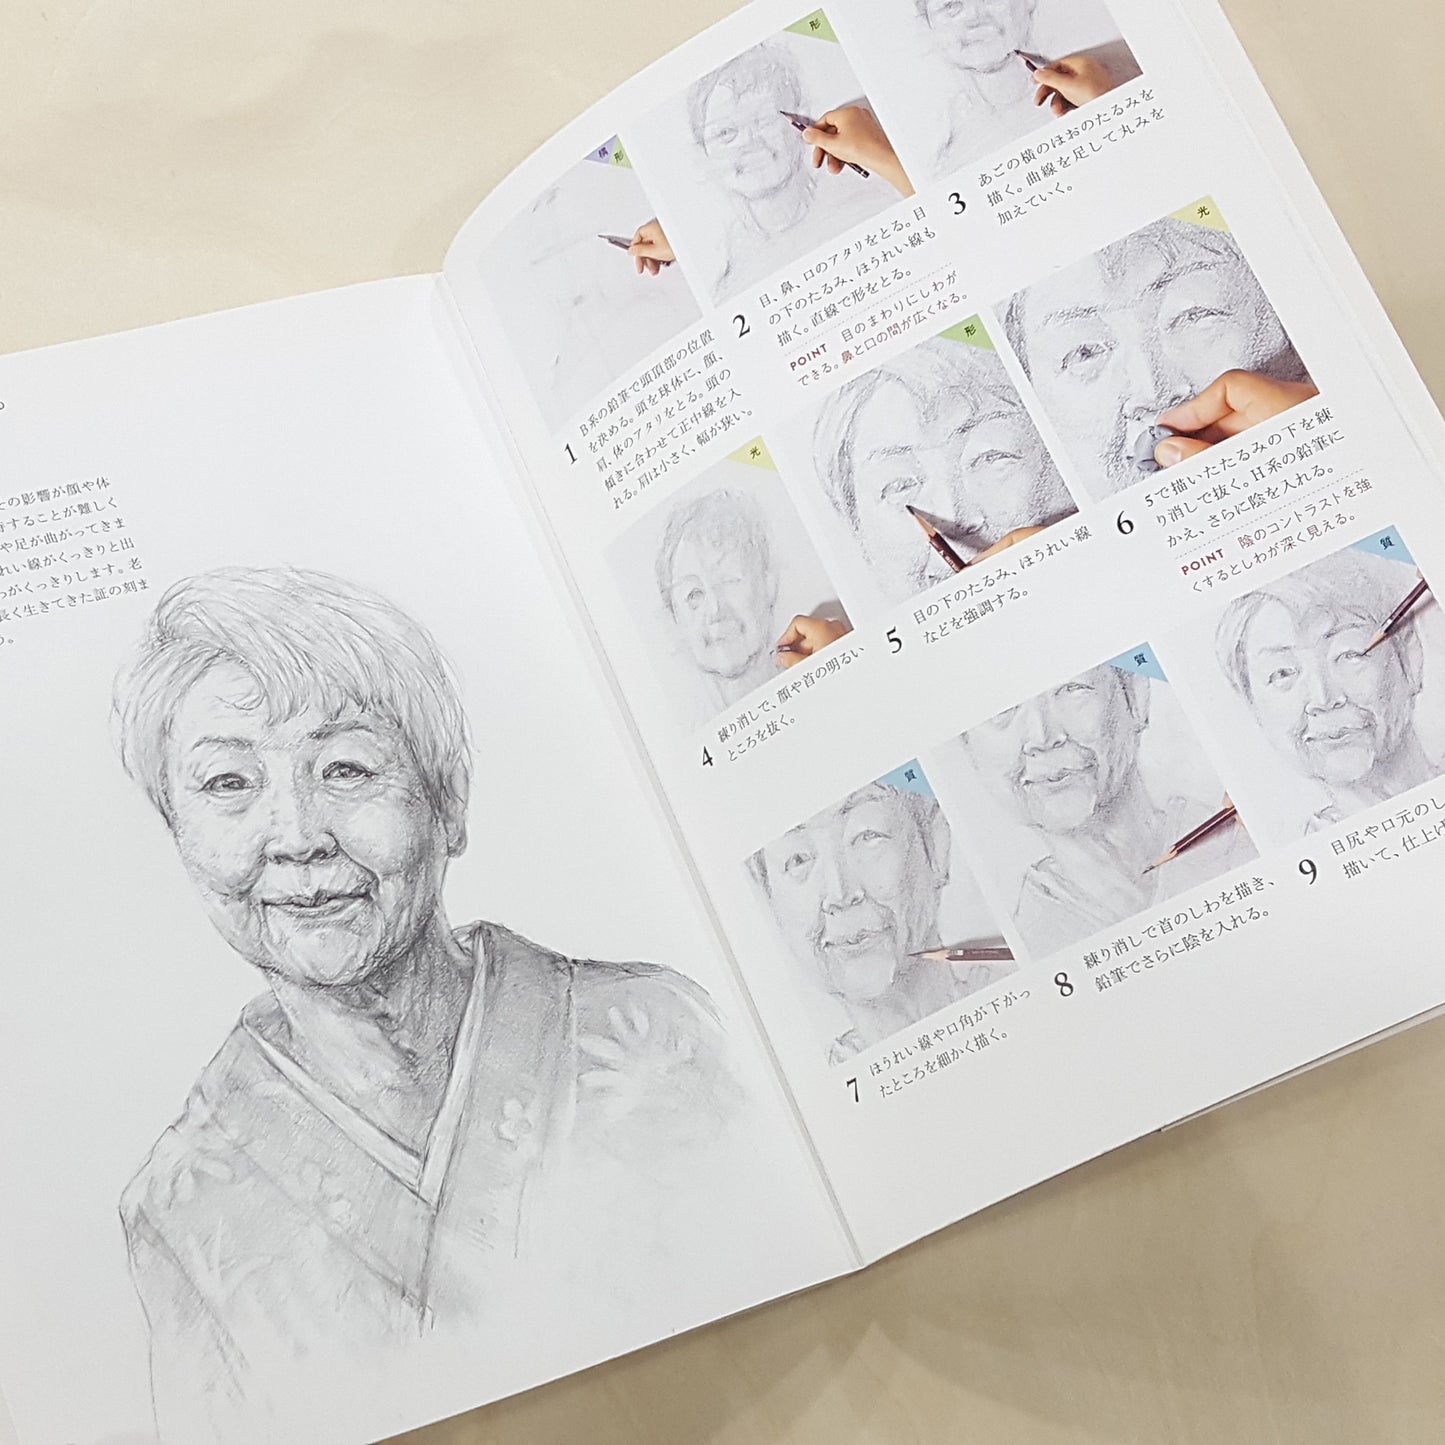 の影響が顔や体
することが難しく
や足が曲がってきま
れい線がくっきりと出
わがくっきりします。老
長く生きてきた証の刻ま
構 形
1
B系の鉛筆で頭頂部の位置
を決める。頭を球体に、顔、
肩、体のアタリをとる。頭の
傾きに合わせて正中線を入
れる。肩は小さく、幅が狭い。
形
2
目、鼻、口のアタリをとる。目
の下のたるみ、ほうれい線も
描く。直線で形をとる。
POINT 目のまわりにしわが
できる。鼻と口の間が広くなる。
3
あごの横のほおのたるみを
描く。曲線を足して丸みを
加えていく。
光
4
練り消しで、顔や首の明るい
ところを抜く。
形
5
目の下のたるみ、ほうれい線
などを強調する。
光
6
5で描いたたるみの下を練
り消しで抜く。H系の鉛筆に
かえ、さらに陰を入れる。
POINT 陰のコントラストを強
くするとしわが深く見える。
質
7
ほうれい線や口角が下がっ
たところを細かく描く。
質
8
練り消しで首のしわを描き、
鉛筆でさらに陰を入れる。
質
9
目尻や口元のし
描いて、仕上げ